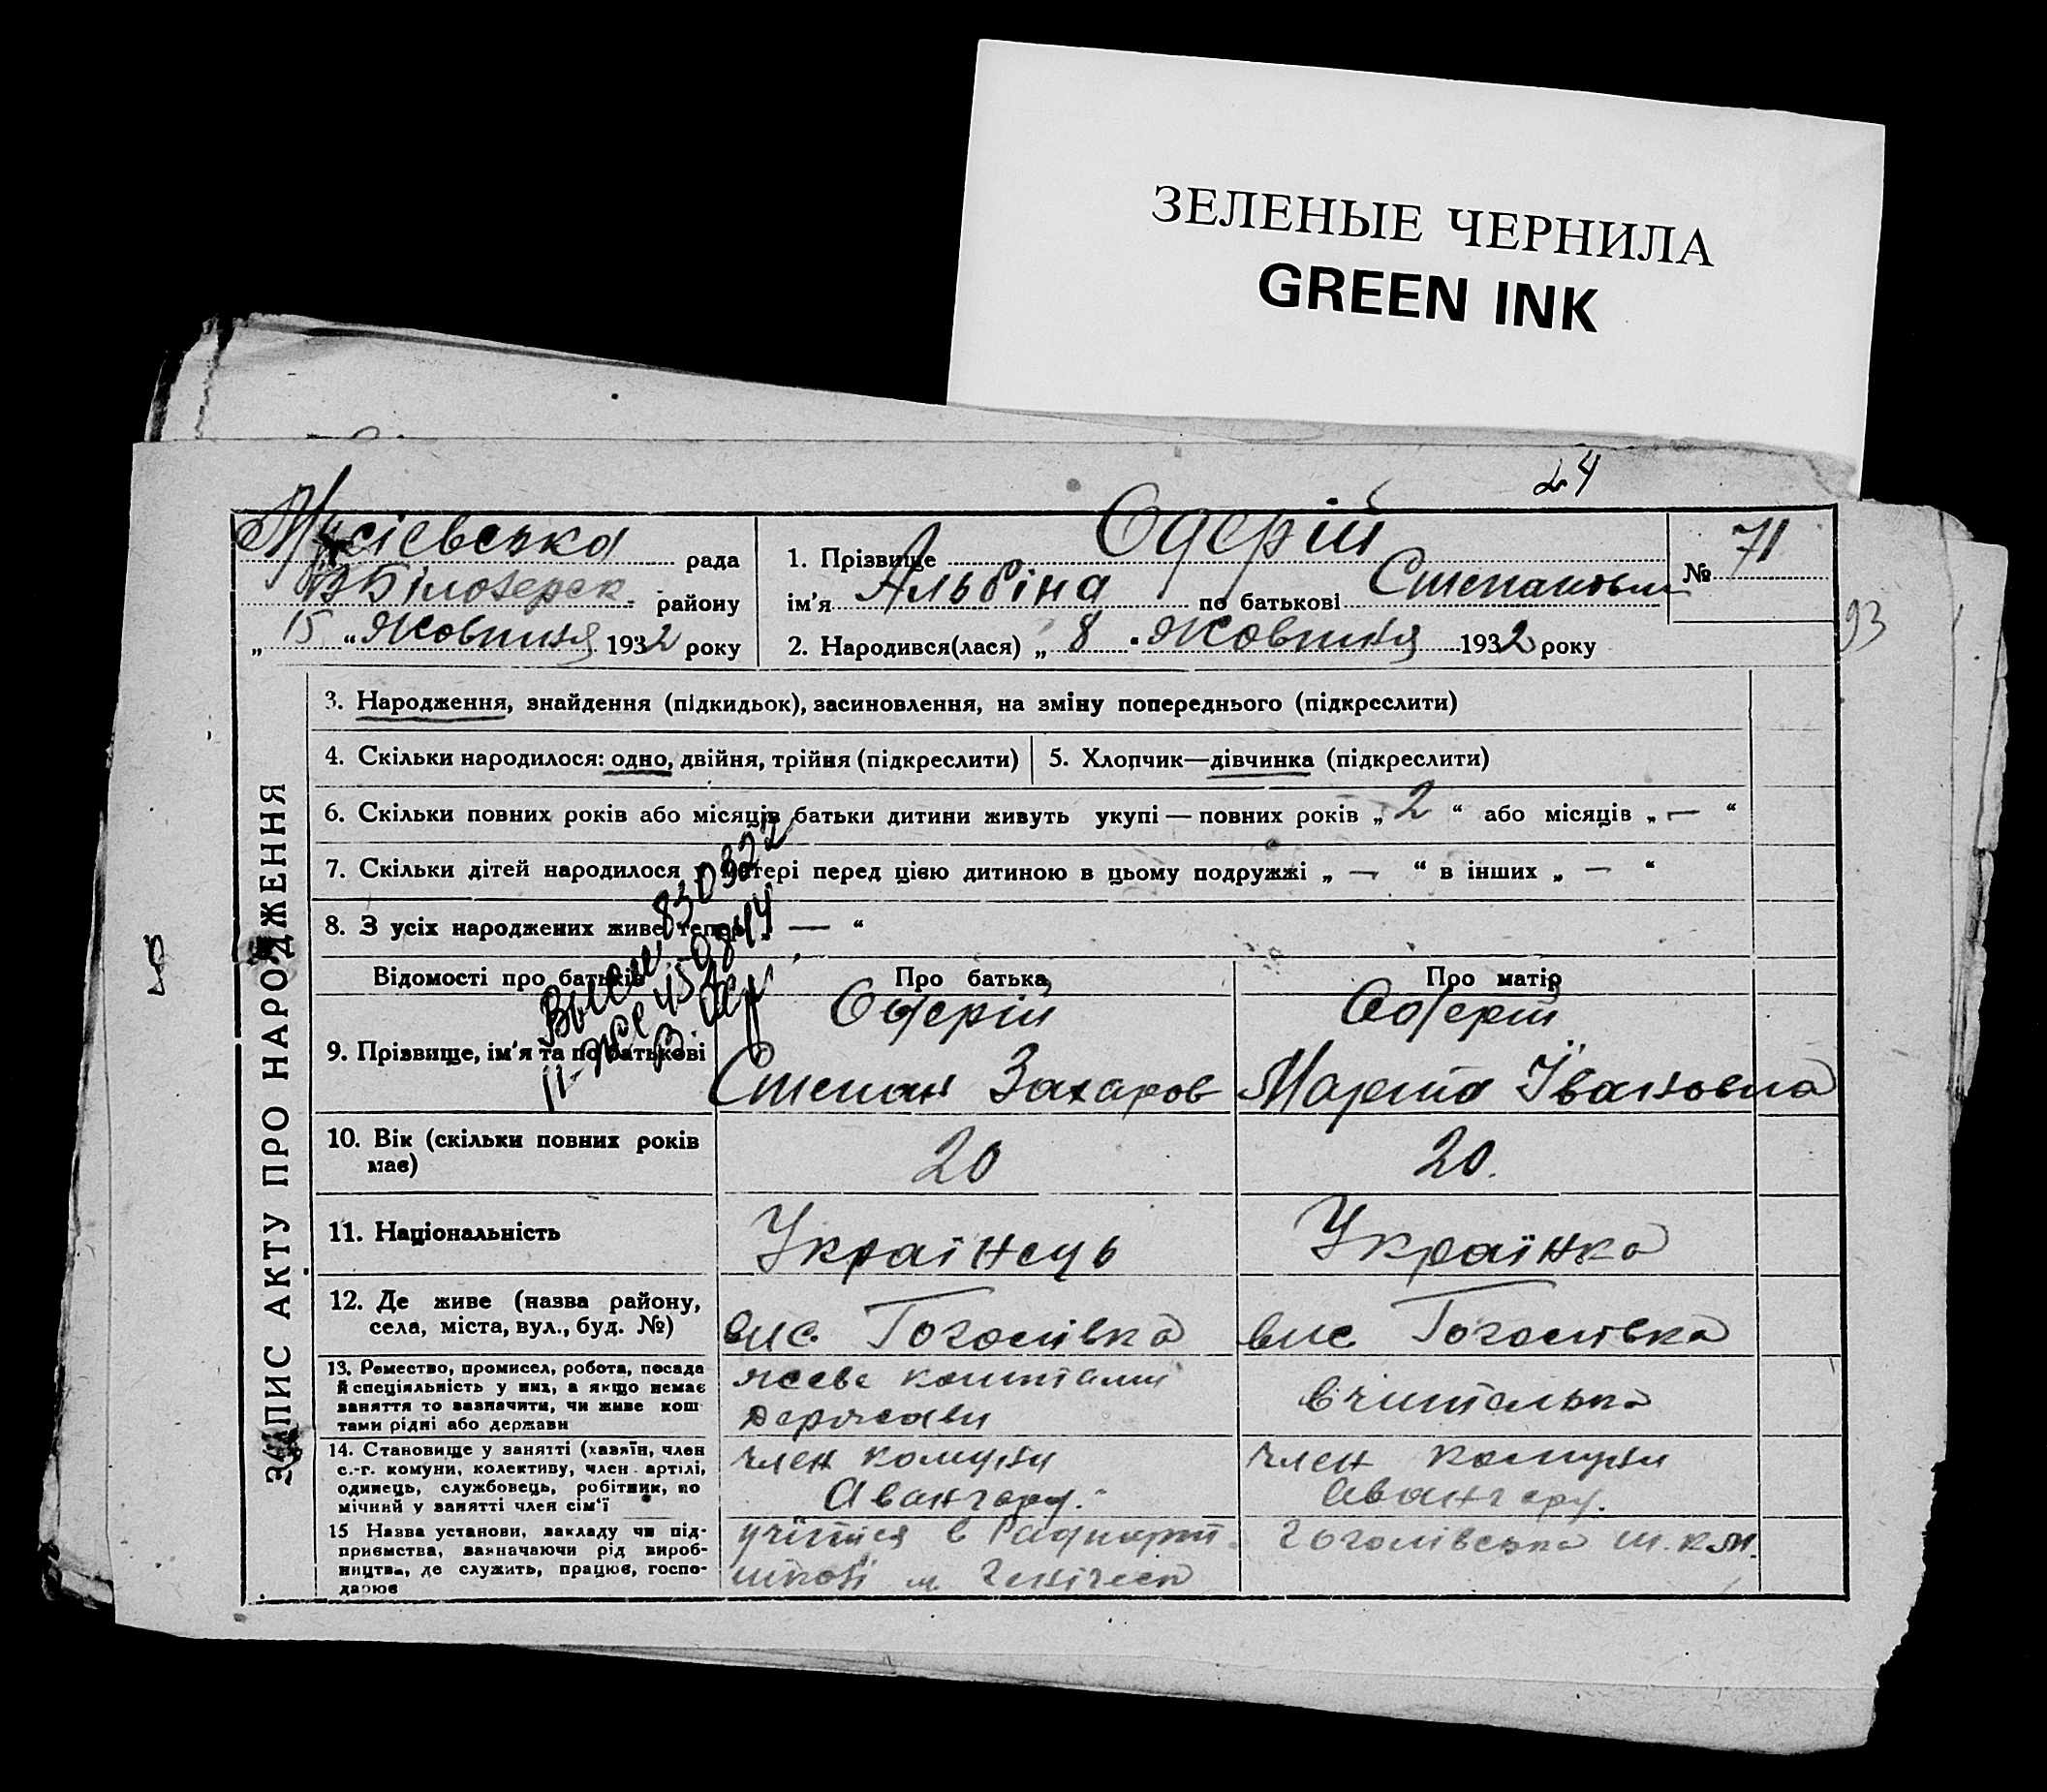 ЗЕЛЕНЫЕ ЧЕРНИЛА
GREEN INK
24
Мусіевська рада
ВБілозерск. району
„ 15 „ Жовтня 1932 року
1. Прізвище Одерій
ім'я Альбіна по батькові Степановна
№ 71
2. Народився(лася) „ 8 „ Жовтня 1932 року
93
3. Народження, знайдення (підкидьок), засиновлення, на зміну попереднього (підкреслити)
4. Скільки народилося: одно, двійня, трійня (підкреслити)
5. Хлопчик—дівчинка (підкреслити)
6. Скільки повних років або місяців батьки дитини живуть укупі — повних років „ 2 “ або місяців „ — “
7. Скільки дітей народилося у матері перед цією дитиною в цьому подружжі „ — “ в інших „ — “
8. З усіх народжених живе тепер „ — “
830322
ЗАПИС АКТУ ПРО НАРОДЖЕННЯ
Відомості про батьків
Про батька
Про матір
9. Прізвище, ім'я та по батькові
Одерій
Степан Захаров
Одерій
Марта Івановна
10. Вік (скільки повних років має)
20
20.
11. Національність
Українець
Українка
12. Де живе (назва району,
села, міста, вул., буд. №)
вис. Гоголівка
вис Гоголівка
13. Ремество, промисел, робота, посада
й спеціяльність у них, а якщо немає
заняття то зазначити, чи живе кош
тами рідні або держави
живе коштами
держави
вчителька
14. Становище у занятті (хазяїн, член
с.-г. комуни, колективу, член артілі,
одинець, службовець, робітник, по
мічний у занятті член сім'ї
член комуни
Авангард.
член комуни
Авангард.
15 Назва установи, закладу чи під-
приємства, зазначаючи рід вироб-
ництва, де служить, працює, госпо-
дарює
учіться в Радпарт.
школі м. Геніческ
Гоголівська ш.к.м.